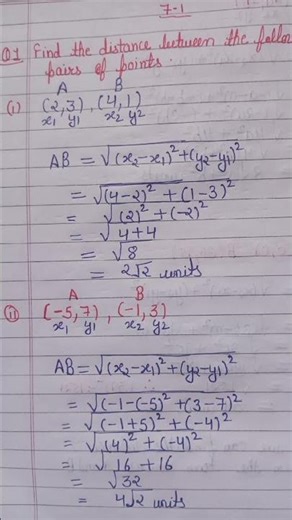 7-1
Q1 Find the distance between the follo
pairs of points.
A B
(i) (2,3), (4,1)
x₁ y₁ x₂ y₂
AB = √(x₂-x₁)²+(y₂-y₁)²
= √(4-2)² + (1-3)²
= √(2)² + (-2)²
= √4+4
= √8
= 2√2 units
A B
(ii) (-5,7), (-1,3)
x₁ y₁ x₂ y₂
AB = √(x₂-x₁)²+(y₂-y₁)²
= √(-1-(-5)² +(3-7)²
= √(-1+5)² + (-4)²
= √(4)² + (-4)²
= √16 +16
= √32
= 4√2 units